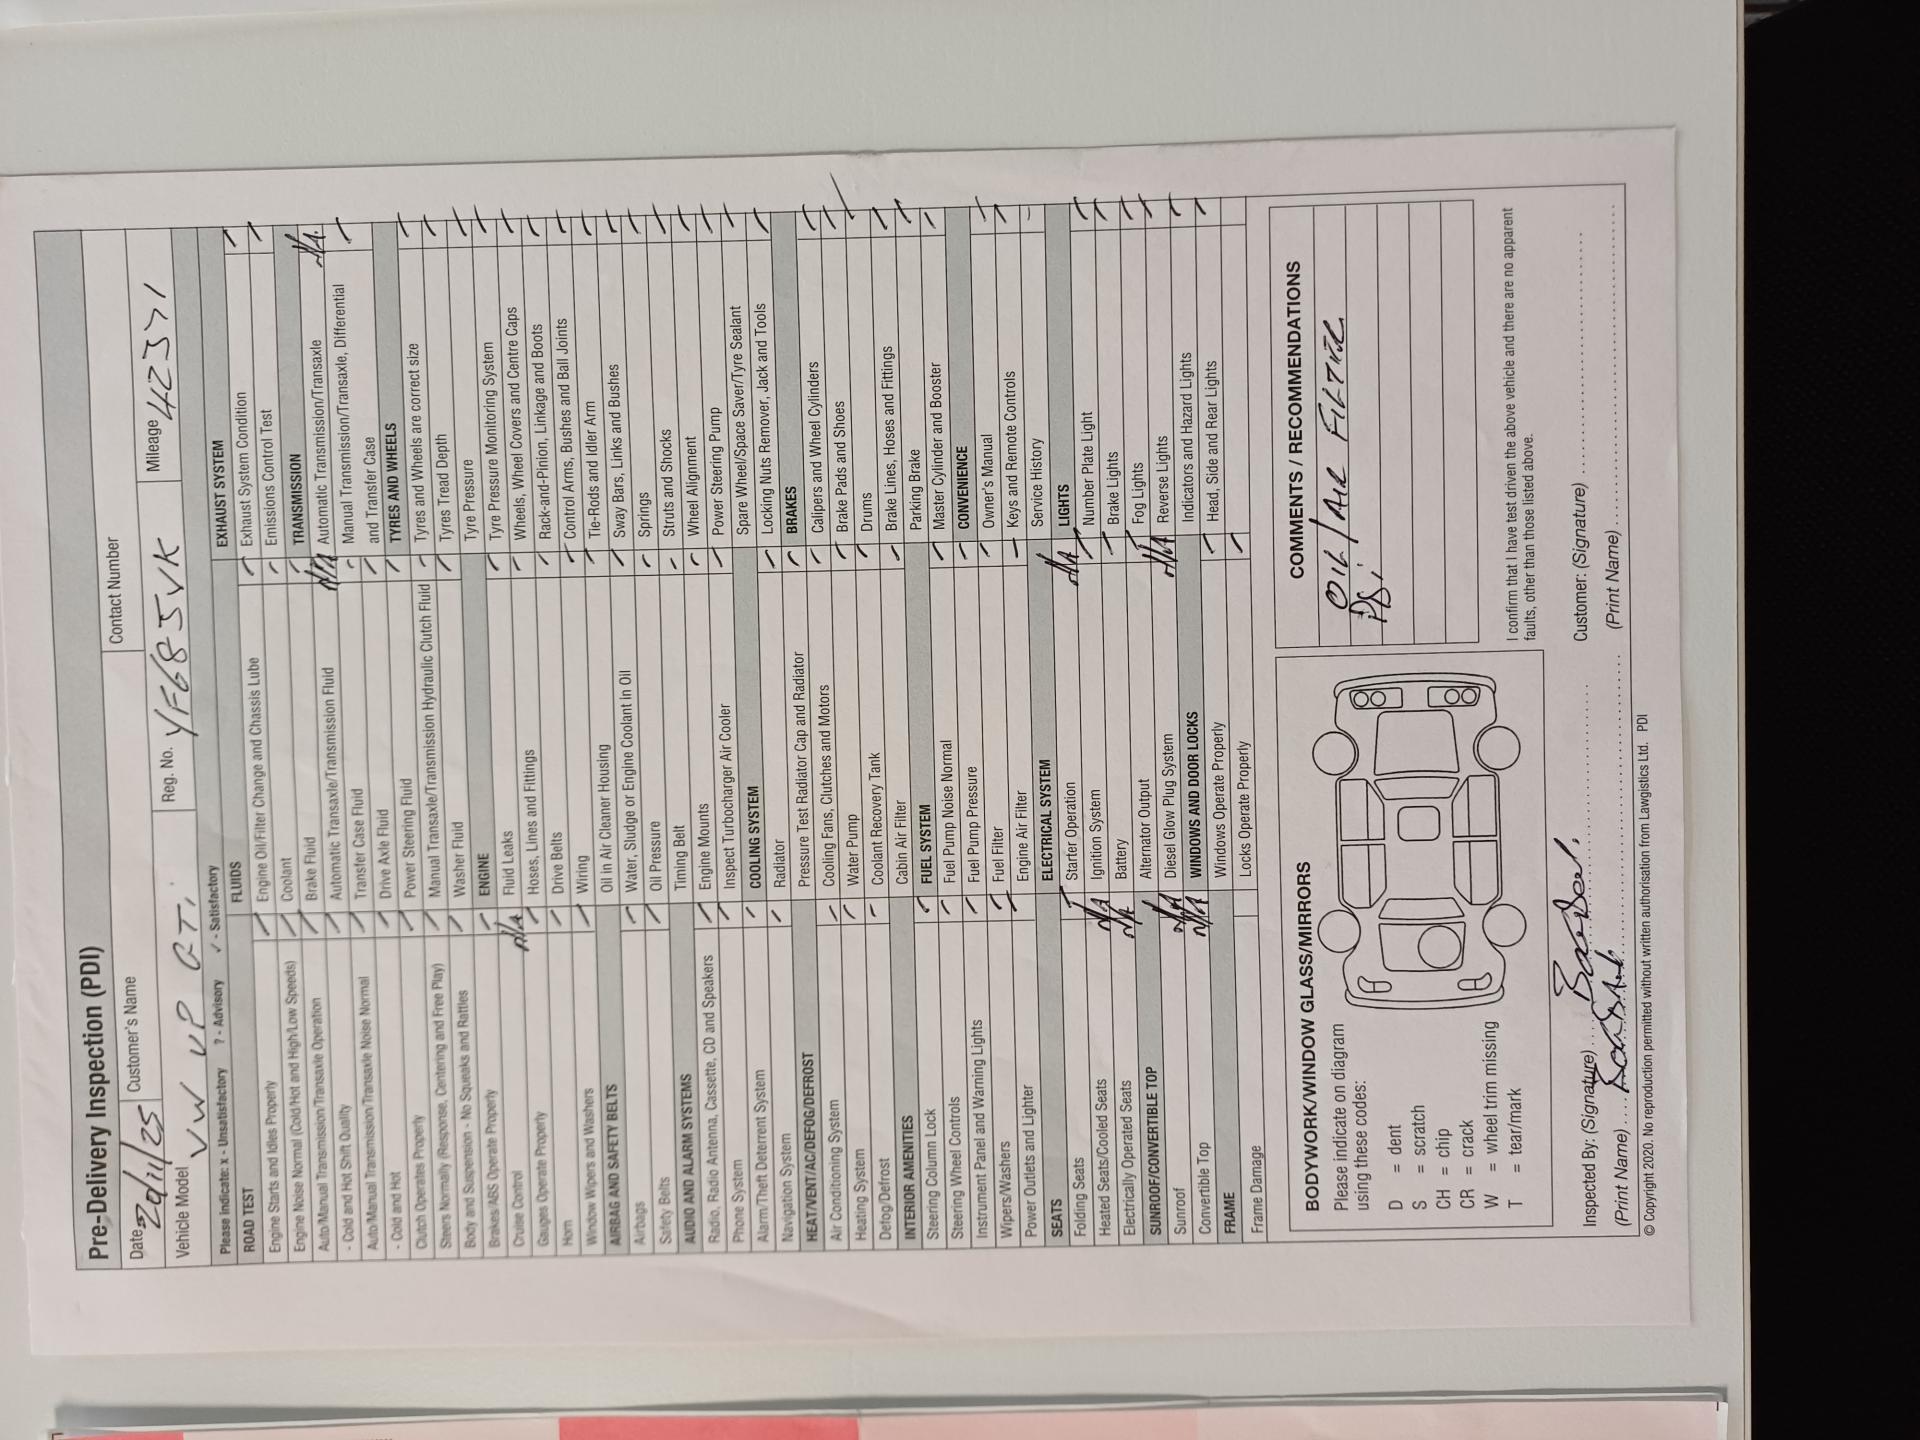 Pre-Delivery Inspection (PDI)
Date
Customer's Name
Contact Number
Vehicle Model VW UP GTi
Reg. No. YF68 5VK
Mileage 42371
Please indicate: x - Unsatisfactory ? - Advisory ✓ - Satisfactory
ROAD TEST
Engine Starts and Idles Properly ✓
Engine Noise Normal (Cold/Hot and High/Low Speeds) ✓
Auto/Manual Transmission/Transaxle Operation
- Cold and Hot Shift Quality ✓
Auto/Manual Transmission/Transaxle Noise Normal
- Cold and Hot ✓
Clutch Operates Properly ✓
Steers Normally (Response, Centering and Free Play) ✓
Body and Suspension - No Squeaks and Rattles ✓
Brakes/ABS Operate Properly ✓
Cruise Control N/A
Gauges Operate Properly ✓
Horn ✓
Window Wipers and Washers ✓
AIRBAG AND SAFETY BELTS
Airbags ✓
Safety Belts ✓
AUDIO AND ALARM SYSTEMS
Radio, Radio Antenna, Cassette, CD and Speakers ✓
Phone System ✓
Alarm/Theft Deterrent System
Navigation System ✓
HEAT/VENT/AC/DEFOG/DEFROST
Air Conditioning System ✓
Heating System ✓
Defog/Defrost ✓
INTERIOR AMENITIES
Steering Column Lock ✓
Steering Wheel Controls ✓
Instrument Panel and Warning Lights ✓
Wipers/Washers ✓
Power Outlets and Lighter
SEATS
Folding Seats ✓
Heated Seats/Cooled Seats N/A
Electrically Operated Seats N/A
SUNROOF/CONVERTIBLE TOP
Sunroof N/A
Convertible Top N/A
FRAME
Frame Damage
FLUIDS
Engine Oil/Filter Change and Chassis Lube ✓
Coolant ✓
Brake Fluid ✓
Automatic Transaxle/Transmission Fluid N/A
Transfer Case Fluid
Drive Axle Fluid ✓
Power Steering Fluid ✓
Manual Transaxle/Transmission Hydraulic Clutch Fluid ✓
Washer Fluid ✓
ENGINE
Fluid Leaks ✓
Hoses, Lines and Fittings ✓
Drive Belts ✓
Wiring ✓
Oil in Air Cleaner Housing ✓
Water, Sludge or Engine Coolant in Oil ✓
Oil Pressure ✓
Timing Belt ✓
Engine Mounts ✓
Inspect Turbocharger Air Cooler ✓
COOLING SYSTEM
Radiator ✓
Pressure Test Radiator Cap and Radiator ✓
Cooling Fans, Clutches and Motors ✓
Water Pump ✓
Coolant Recovery Tank ✓
Cabin Air Filter ✓
FUEL SYSTEM
Fuel Pump Noise Normal ✓
Fuel Pump Pressure ✓
Fuel Filter ✓
Engine Air Filter
ELECTRICAL SYSTEM
Starter Operation
Ignition System ✓
Battery ✓
Alternator Output ✓
Diesel Glow Plug System N/A
WINDOWS AND DOOR LOCKS
Windows Operate Properly ✓
Locks Operate Properly ✓
EXHAUST SYSTEM
Exhaust System Condition ✓
Emissions Control Test ✓
TRANSMISSION
Automatic Transmission/Transaxle N/A
Manual Transmission/Transaxle, Differential
and Transfer Case ✓
TYRES AND WHEELS
Tyres and Wheels are correct size ✓
Tyres Tread Depth ✓
Tyre Pressure ✓
Tyre Pressure Monitoring System ✓
Wheels, Wheel Covers and Centre Caps ✓
Rack-and-Pinion, Linkage and Boots ✓
Control Arms, Bushes and Ball Joints ✓
Tie-Rods and Idler Arm ✓
Sway Bars, Links and Bushes ✓
Springs ✓
Struts and Shocks ✓
Wheel Alignment ✓
Power Steering Pump ✓
Spare Wheel/Space Saver/Tyre Sealant ✓
Locking Nuts Remover, Jack and Tools ✓
BRAKES
Calipers and Wheel Cylinders ✓
Brake Pads and Shoes ✓
Drums ✓
Brake Lines, Hoses and Fittings ✓
Parking Brake ✓
Master Cylinder and Booster ✓
CONVENIENCE
Owner's Manual ✓
Keys and Remote Controls ✓
Service History
LIGHTS
Number Plate Light ✓
Brake Lights ✓
Fog Lights ✓
Reverse Lights ✓
Indicators and Hazard Lights ✓
Head, Side and Rear Lights ✓
BODYWORK/WINDOW GLASS/MIRRORS
Please indicate on diagram
using these codes:
D = dent
S = scratch
CH = chip
CR = crack
W = wheel trim missing
T = tear/mark
COMMENTS / RECOMMENDATIONS
OIL / AIR FILTER
PDi
I confirm that I have test driven the above vehicle and there are no apparent
faults, other than those listed above.
Inspected By: (Signature)
Customer: (Signature)
(Print Name)
(Print Name)
© Copyright 2020. No reproduction permitted without written authorisation from Lawgistics Ltd. PDI